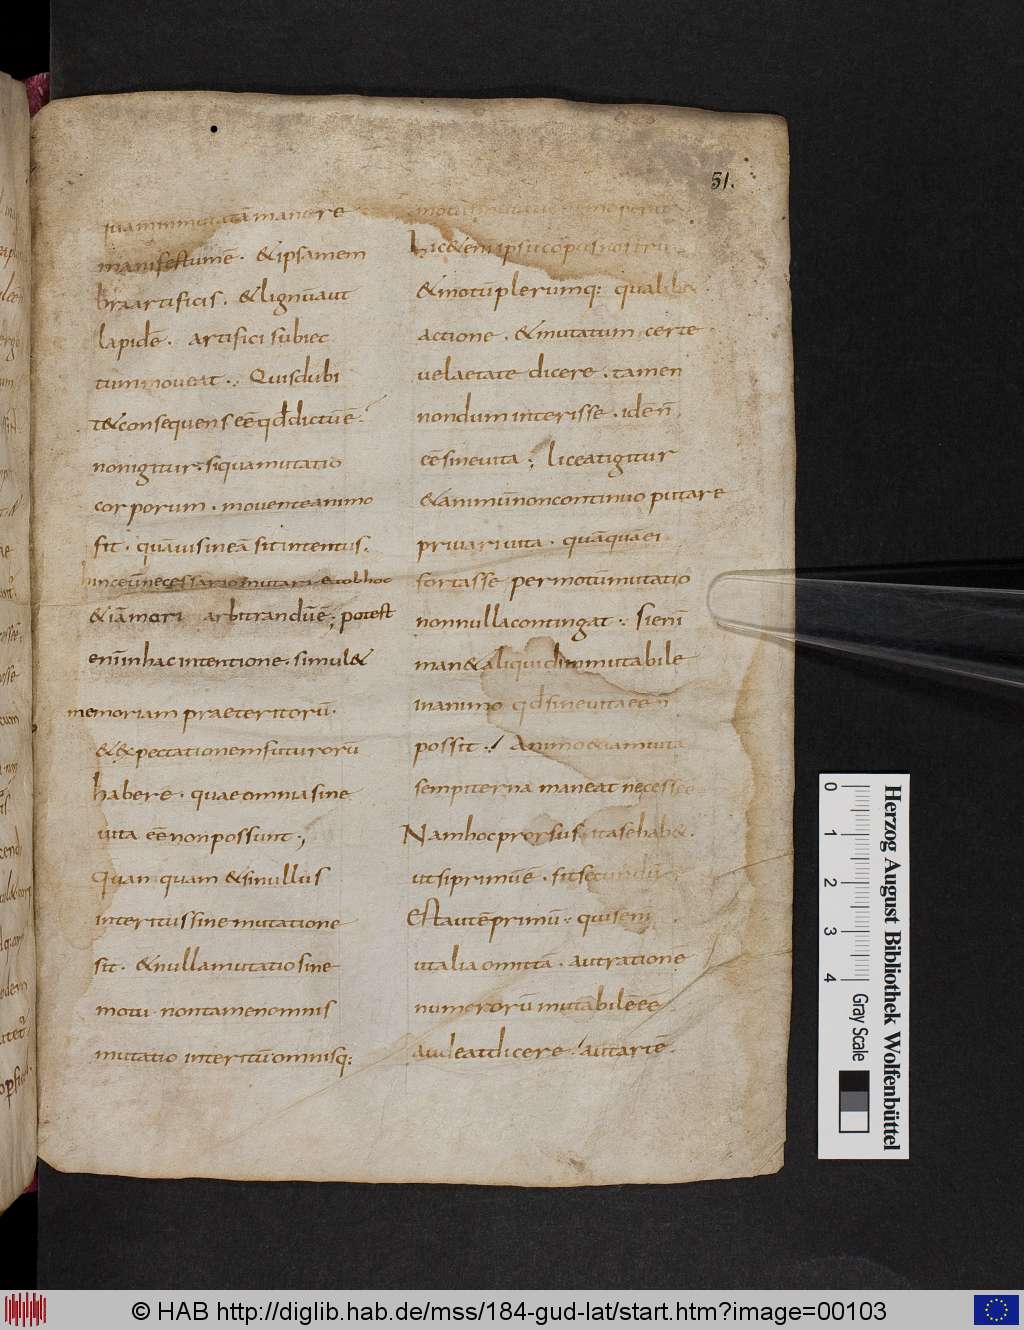 51.
manere
manifestumē · & ipsa mem
bra artificis . & lignū aut
lapidē . artifici subiec
tum moueat . Quis dubi
t& consequens eē qđ dictū ē
non igitur . si qua mutatio
corporum . mouente animo
sit . quāuis in eā sit intentus .
hinc eū necessario mutari & ob hoc
& iā mori arbitrandū ē ; potest
enī in hac intentione . simul &
memoriam praeteritorū .
& expectationem futurorū
habere . quae omnia sine
uita eē non possunt ;
Quam quam & si nullus
interitus sine mutatione
sit . & nulla mutatio sine
motu non tamen omnis
mutatio interitū omnisq:
& motū plerumq: qualib&
actione . & mutatum certe
uel aetate dicere . tamen
nondum interisse . id ē n̄
eē sine uita ; liceat igitur
& animū non continuo putare
priuari uita . quāquā ei
fortasse per motū mutatio
non nulla contingat . Si enī
man& aliquid inmutabile
in animo qđ sine uita eē n̄
possit . Animo &iam uita
sempiterna maneat necesse
Nam hoc prorsus ita se hab& .
ut si primū ē . sit secundū
Est autē primū . quis enī
ut alia omittā . aut rationē
numerorū mutabilē eē
audeat dicere aut artē .
Herzog August Bibliothek Wolfenbüttel
0 1 2 3 4
Gray Scale
© HAB http://diglib.hab.de/mss/184-gud-lat/start.htm?image=00103